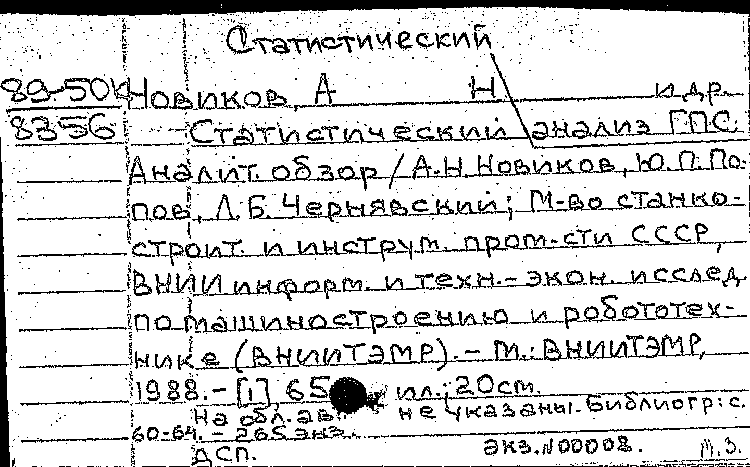 Статистический
89-50к Новиков, А Н и др.
8356 Статистический анализ ГПС:
Аналит. обзор / А.Н. Новиков, Ю.П. По-
пов, Л.Б. Чернявский; М-во станко-
строит. и инструм. пром-сти СССР,
ВНИИ информ. и техн.-экон. исслед.
по машиностроению и робототех-
нике (ВНИИТЭМР). - М.: ВНИИТЭМР,
1988. - [1], 65 ил.; 20 cm.
На обл. авт. не указаны. Библиогр.: с.
60-64. - 265 экз.
ДСП. экз. N 00008.